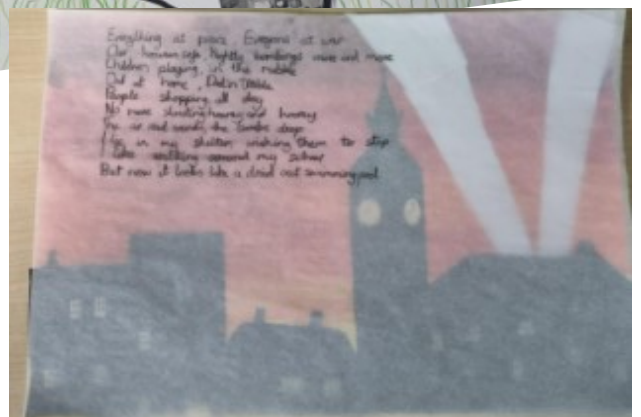 Everything at peace, Everyone at war
Our houses safe, Nightly bombings more and more
Children playing, in the rubble
Out at home,
People shopping all day
No more houses and
The air raid sounds, the bombs drop
I in my shelter wishing them to stop
I like walking around my school
But now it looks like a dried out swimming pool